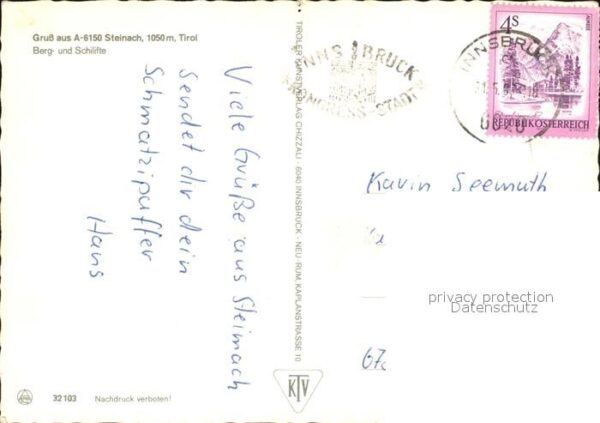 Gruß aus A-6150 Steinach, 1050 m, Tirol
Berg- und Schilifte
Viele Grüße aus Steinach
sendet dir dein
Schmatzipuffer
Hans
TIROLER KUNSTVERLAG CHIZZALI · 6040 INNSBRUCK - NEU-RUM, KAPLANSTRASSE 10
INNSBRUCK
KONGRESS-STADT
INNSBRUCK
6020
4S
REPUBLIK ÖSTERREICH
Karin Seemuth
Ka
privacy protection
Datenschutz
67
KTV
32103 Nachdruck verboten!